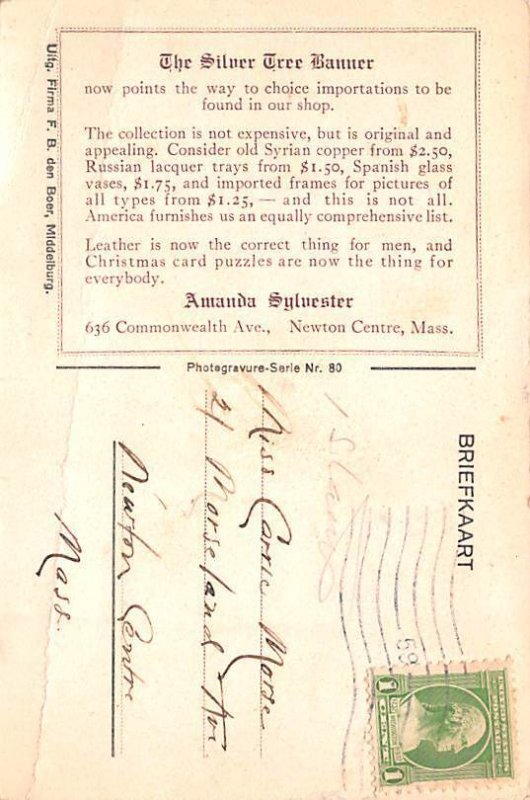 The Silver Tree Banner
now points the way to choice importations to be
found in our shop.
The collection is not expensive, but is original and
appealing. Consider old Syrian copper from $2.50,
Russian lacquer trays from $1.50, Spanish glass
vases, $1.75, and imported frames for pictures of
all types from $1.25, — and this is not all.
America furnishes us an equally comprehensive list.
Leather is now the correct thing for men, and
Christmas card puzzles are now the thing for
everybody.
Amanda Sylvester
636 Commonwealth Ave., Newton Centre, Mass.
Uitg. Firma F. B. den Boer, Middelburg.
Photogravure-Serie Nr. 80
BRIEFKAART
Miss Carrie Morse
21 Morseland Ave
Newton Centre
Mass.
59
UNITED STATES
POSTAGE
1 CENT 1